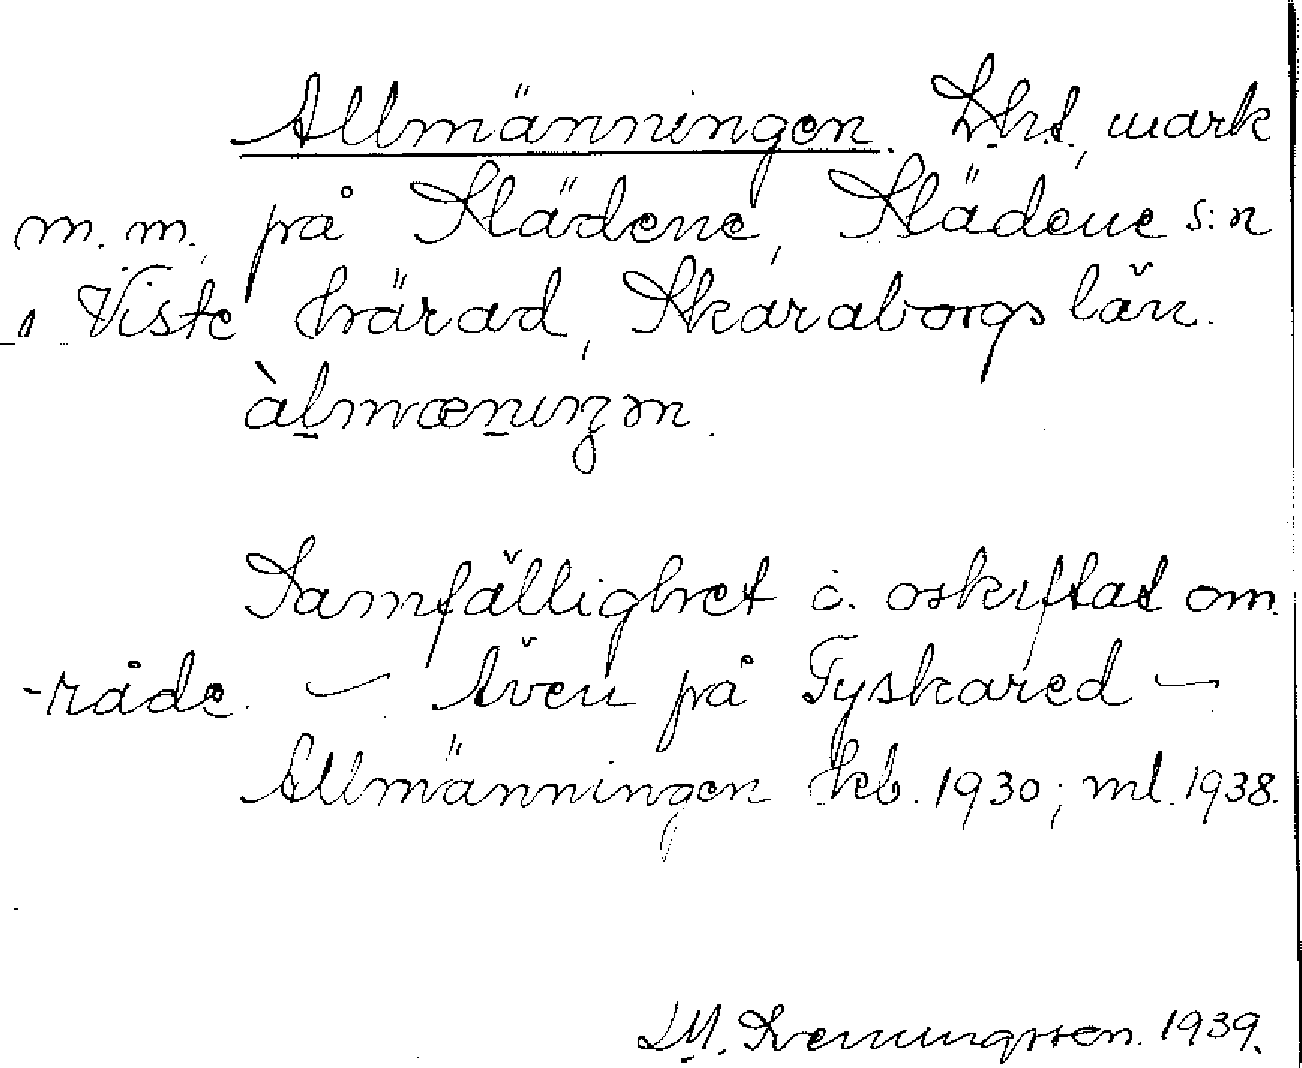 Allmänningen. Lht, mark
m.m. på Slädene, Slädene s:n
, Viste härad, Skaraborgs län.
àlmænıŋən.
Samfällighet o. oskiftat om
-råde. — Även på Tyskared —
Allmänningen kb. 1930; ml. 1938.
1939.